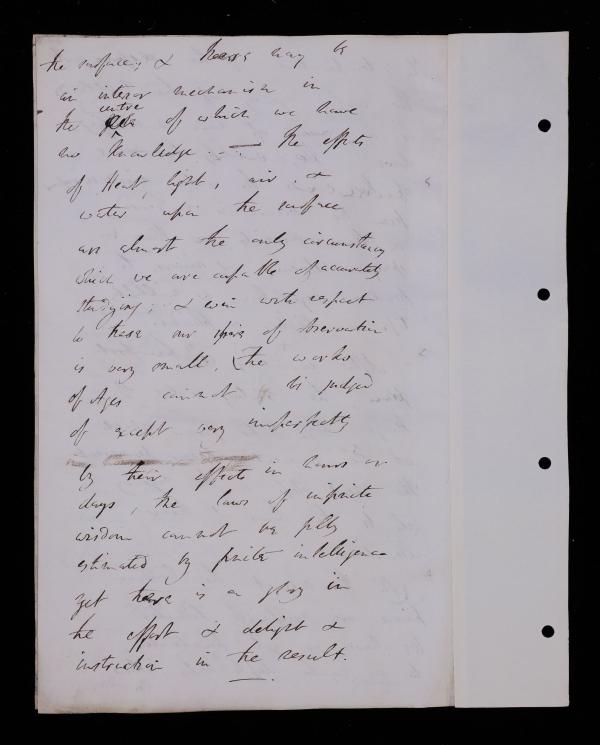 the surface; & there may be
an interior mechanism in
centre
the of which we have
no knowledge. — The effects
of Heat, light, air &
water upon the surface
are almost the only circumstances
which we are capable of accurately
studying; & even with respect
to these our of observation
is very small, the works
of Ages cannot be judged
of except very imperfectly
by their effects in hours or
days, the laws of infinite
wisdom cannot be fully
estimated by finite intelligence
yet there is a glory in
the effort & delight &
instruction in the result.